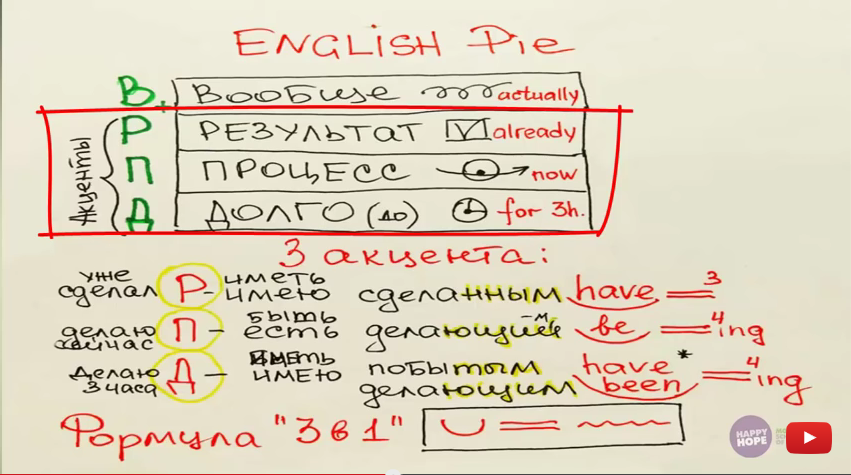 ENGLISH Pie
В. Вообще actually
Акценты
Р РЕЗУЛЬТАТ V already
П ПРОЦЕСС now
Д ДОЛГО (до) for 3h.
3 акцента:
уже сделал Р - иметь имею сделанным have 3
делаю сейчас П - быть есть делающий -м be 4 ing
делаю 3 часа Д - иметь имею побытым делающим have been * 4 ing
Формула "3 в 1"
HAPPY HOPE